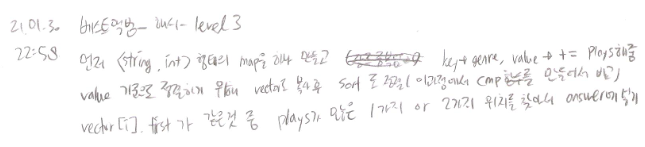 21.01.30. 베스트앨범 - 해시 - level 3
22:58 먼저 <string, int> 형태의 map을 하나 만들고 key → genre, value → += plays해줌
value 기준으로 정렬하기 위해 vector로 복사후 sort로 정렬(이과정에서 cmp 함수를 만들어서 비교)
vector[i].first 가 같은것 중 plays가 많은 1가지 or 2가지 위치를 찾아서 answer에 넣기